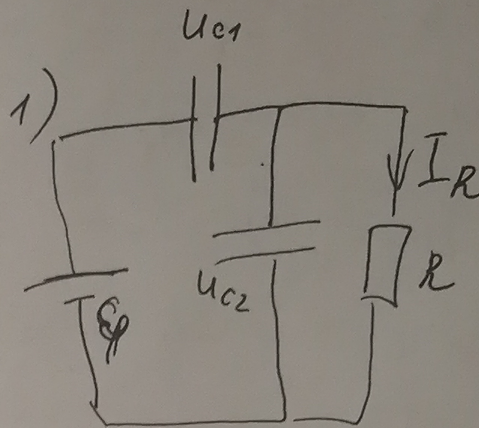 U_C1
1)
I_R
U_C2
R